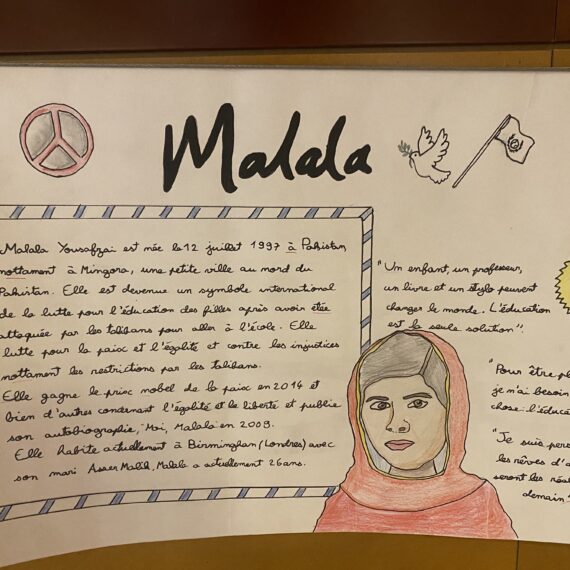 Malala
Malala Yousafzai est née le 12 juillet 1997 à Pakistan,
nottament à Mingora, une petite ville au nord du
Pakistan. Elle est devenue un symbole international
de la lutte pour l'éducation des filles après avoir étée
attaquée par les talibans pour aller à l'école. Elle
lutte pour la paix et l'égalité et contre les injustices
nottament les restrictions par les talibans.
Elle gagne le prix nobel de la paix en 2014 et
bien d'autres concernant l'égalité et la liberté et publie
son autobiographie, "Moi, Malala en 2009.
Elle habite actuellement à Birminghan (Londres) avec
son mari Asser Malik, Malala a actuellement 26 ans.
"Un enfant, un professeur,
un livre et un stylo peuvent
changer le monde. L'éducation
est la seule solution".
"Pour être pl
je n'ai besoin
chose: l'éduca
"Je suis pers
les rêves d'a
seront les réal
demain"